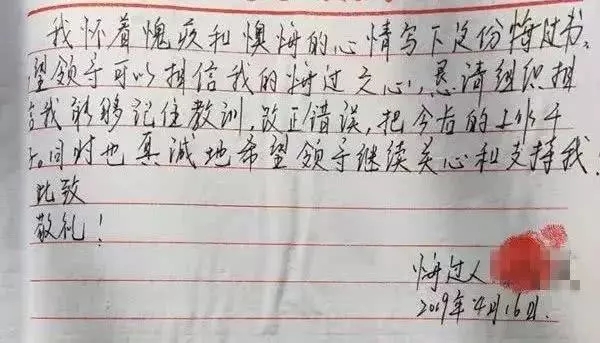 我怀着愧疚和懊悔的心情写下这份悔过书,
望领导可以相信我的悔过之心,恳请组织相
信我能够记住教训,改正错误,把今后的工作干
好。同时也真诚地希望领导继续关心和支持我!
此致
敬礼!
悔过人
2019年4月16日